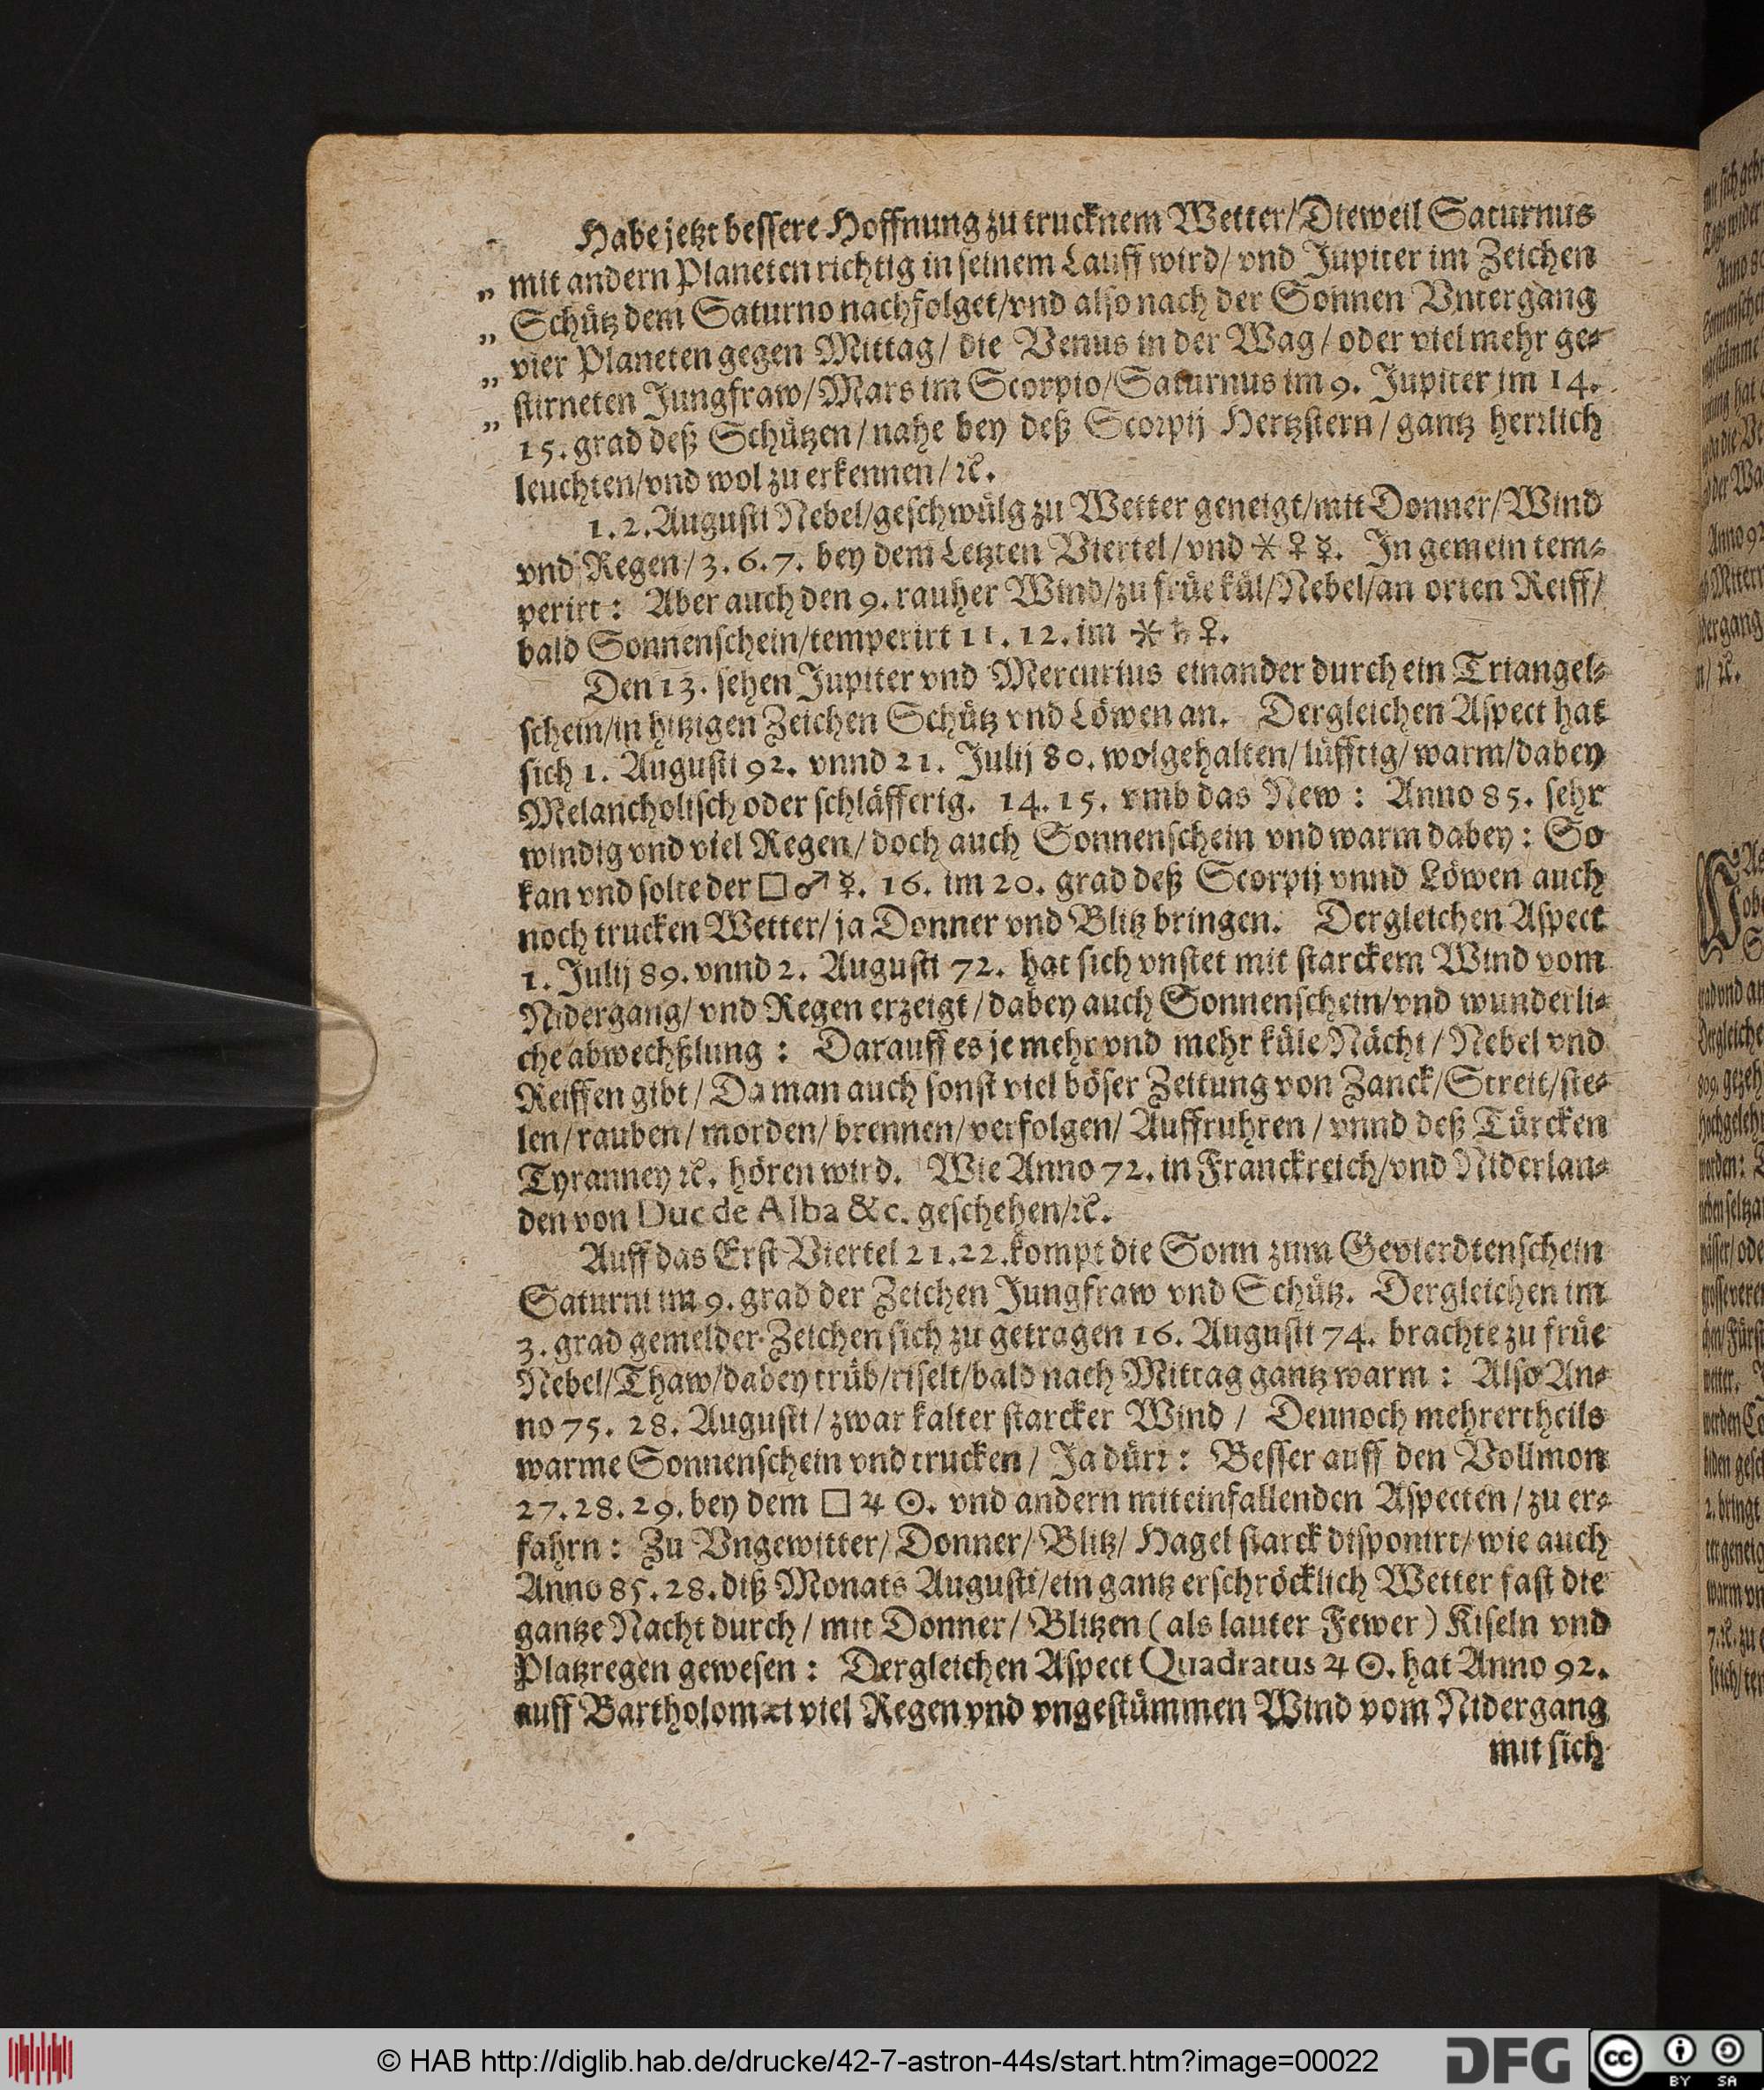 Habe jetzt bessere Hoffnung zu trucknem Wetter/Dieweil Saturnus
„ mit andern Planeten richtig in seinem Lauff wird/ vnd Jupiter im Zeichen
„ Schütz dem Saturno nachfolget/vnd also nach der Sonnen Vntergang
„ vier Planeten gegen Mittag/ die Venus in der Wag/ oder viel mehr ge⸗
„ stirneten Jungfraw/Mars im Scorpio/Saturnus im 9. Jupiter im 14.
15. grad deß Schützen/ nahe bey deß Scorpij Hertzstern/ gantz herꝛlich
leuchten/vnd wol zu erkennen/ ꝛc.
1. 2. Augusti Nebel/geschwülg zu Wetter geneigt/mit Donner/Wind
vnd Regen/ 3. 6. 7. bey dem Letzten Viertel/ vnd ⚹ ♀ ☿. In gemein tem⸗
perirt: Aber auch den 9. rauher Wind/zu früe kül/Nebel/an orten Reiff/
bald Sonnenschein/temperirt 11. 12. im ⚹ ♄ ♀.
Den 13. sehen Jupiter vnd Mercurius einander durch ein Triangel⸗
schein/in hitzigen Zeichen Schütz vnd Löwen an. Dergleichen Aspect hat
sich 1. Augusti 92. vnnd 21. Julij 80. wolgehalten/ lüfftig/ warm/dabey
Melancholisch oder schläfferig. 14. 15. vmb das New: Anno 85. sehr
windig vnd viel Regen/ doch auch Sonnenschein vnd warm dabey: So
kan vnd solte der □ ♂ ☿. 16. im 20. grad deß Scorpij vnnd Löwen auch
noch trucken Wetter/ ja Donner vnd Blitz bringen. Dergleichen Aspect
1. Julij 89. vnnd 2. Augusti 72. hat sich vnstet mit starckem Wind vom
Nidergang/ vnd Regen erzeigt/ dabey auch Sonnenschein/vnd wunderli⸗
che abwechßlung: Darauff es je mehr vnd mehr küle Nächt/ Nebel vnd
Reiffen gibt/ Da man auch sonst viel böser Zeitung von Zanck/Streit/ste⸗
len/ rauben/ morden/ brennen/ verfolgen/ Auffruhren/ vnnd deß Türcken
Tyranney ꝛc. hören wird. Wie Anno 72. in Franckreich/vnd Niderlan⸗
den von Duc de Alba &c. geschehen/ꝛc.
Auff das Erst Viertel 21. 22. kompt die Sonn zum Gevierdtenschein
Saturni im 9. grad der Zeichen Jungfraw vnd Schütz. Dergleichen im
3. grad gemelder Zeichen sich zu getragen 16. Augusti 74. brachte zu früe
Nebel/Thaw/dabey trüb/riselt/bald nach Mittag gantz warm: Also An⸗
no 75. 28. Augusti/ zwar kalter starcker Wind/ Dennoch mehrertheils
warme Sonnenschein vnd trucken/ Ja dürꝛ: Besser auff den Vollmon
27. 28. 29. bey dem □ ♃ ☉. vnd andern miteinfallenden Aspecten/ zu er⸗
fahrn: Zu Vngewitter/ Donner/ Blitz/ Hagel starck disponirt/ wie auch
Anno 85. 28. diß Monats Augusti/ein gantz erschröcklich Wetter fast die
gantze Nacht durch/ mit Donner/ Blitzen (als lauter Fewer) Kiseln vnd
Platzregen gewesen: Dergleichen Aspect Quadratus ♃ ☉. hat Anno 92.
auff Bartholomæi viel Regen vnd vngestümmen Wind vom Nidergang
mit sich
© HAB http://diglib.hab.de/drucke/42-7-astron-44s/start.htm?image=00022
DFG
cc BY SA